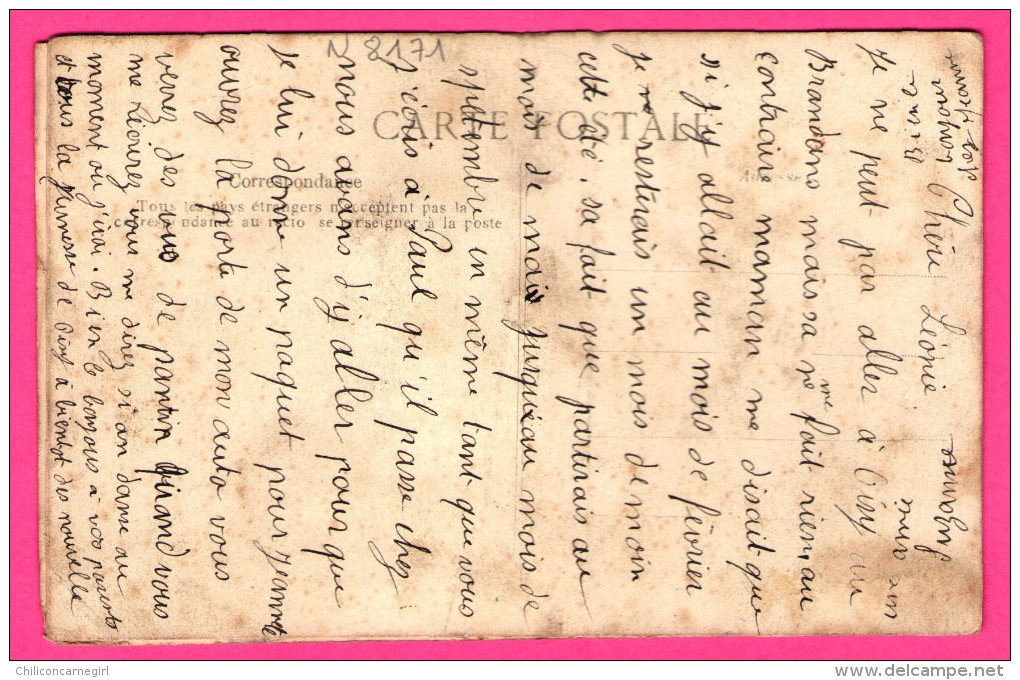 N 8171
CARTE POSTALE
Correspondance
Tous les pays étrangers n'acceptent pas la
correspondance au recto se renseigner à la poste
Adresse
Chère Léonie
Je ne peut pas aller à Oisy au
Brandons mais sa ne me fait rien au
contraire maman me disait que
si j'y allait au mois de février
je resterais un mois de moin
cette été, sa fait que partirais au
mois de mai jusqueau mois de
septembre in même tant que vous
j'écris à Paul qu'il passe chez
nous avans d'y aller pour que
je lui donne un paquet pour Jeannette
ouvrez la porte de mon auto vous
verrez des vus de pantin quand vous
me récourez vous me direz si an danse au
moment ou j'irai. Bien le bonjous à vos parents
et tous la jeunesse de Oisy à bientot des nouvelle
Chiliconcarnegirl
www.delcampe.net